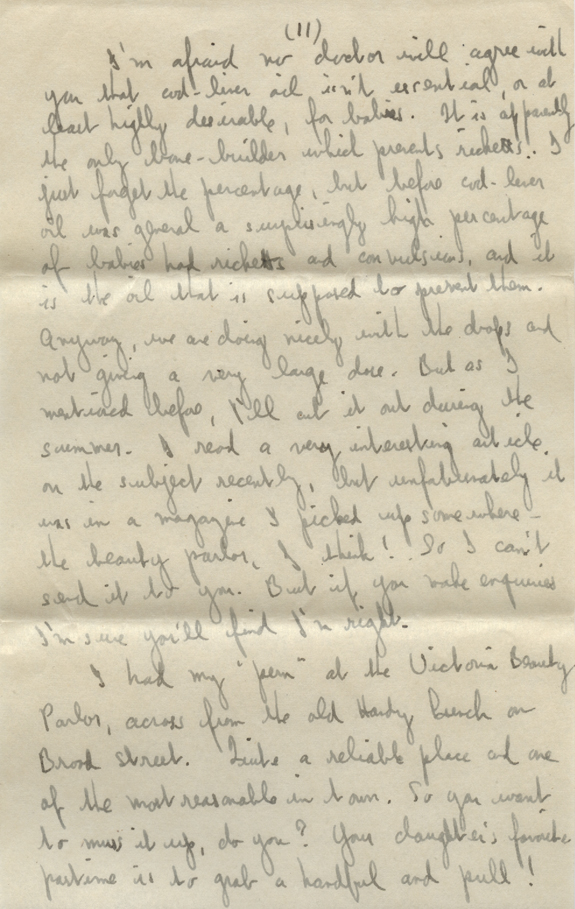 (11)
I'm afraid no doctor will agree with
you that cod-liver oil isn't essential, or at
least highly desirable, for babies. It is apparently
the only bone-builder which prevents rickets. I
just forget the percentage, but before cod-liver
oil was general a surprisingly high percentage
of babies had rickets and convulsions, and it
is the oil that is supposed to prevent them.
Anyway, we are doing nicely with the drops and
not giving a very large dose. But as I
mentioned before, I'll cut it out during the
summer. I read a very interesting article
on the subject recently, but unfortunately it
was in a magazine I picked up somewhere -
the beauty parlor, I think! So I can't
send it to you. But if you make enquiries
I'm sure you'll find I'm right.
I had my "perm" at the Victoria Beauty
Parlor, across from the old Hardy Bunch on
Broad Street. Quite a reliable place and one
of the most reasonable in town. So you want
to muss it up, do you? Your daughter's favorite
pastime is to grab a handful and pull!